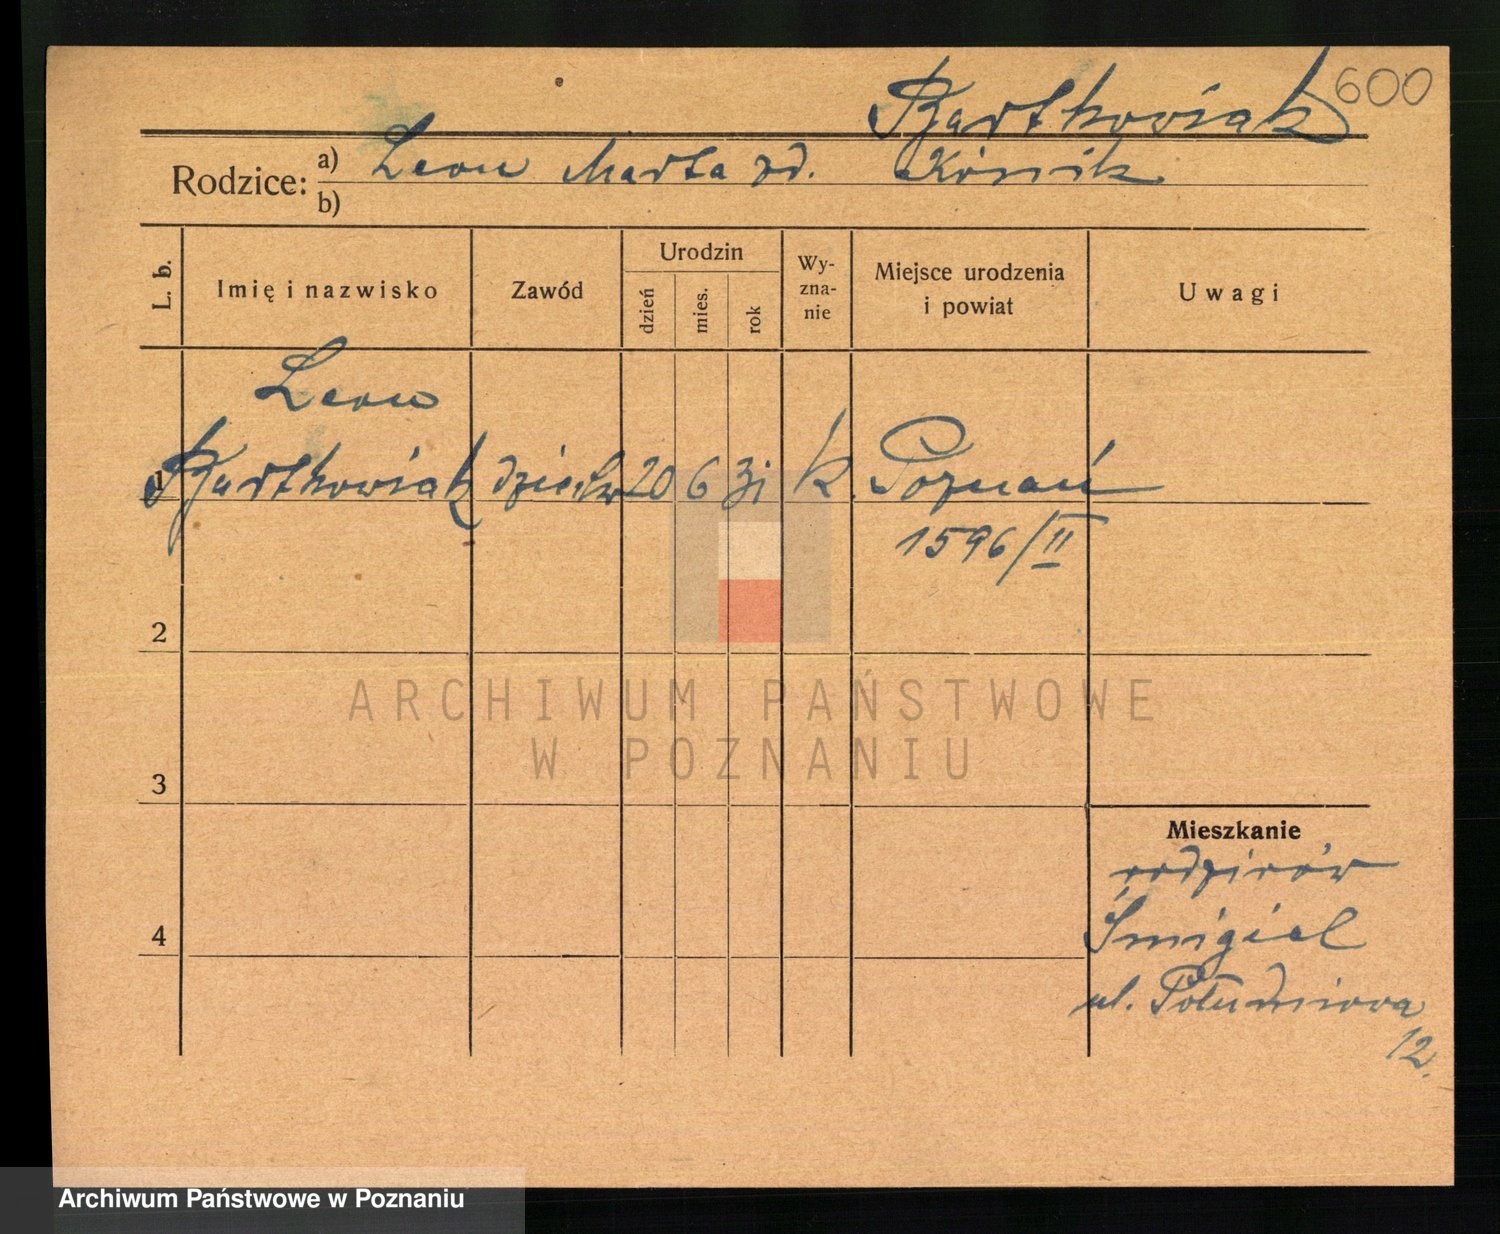 Bartkowiak 600
Rodzice: a) Leon Marta rd.
b)
L. b.
Imię i nazwisko
Zawód
Urodzin
dzień
mies.
rok
Wy-
zna-
nie
Miejsce urodzenia
i powiat
Uwagi
Leon
1 Bartkowiak 20 6 31 k. Poznań
1596/II
2
ARCHIWUM PAŃSTWOWE
W POZNANIU
3
Mieszkanie
rodziców
4 Śmigiel
ul. Południowa
12.
Archiwum Państwowe w Poznaniu